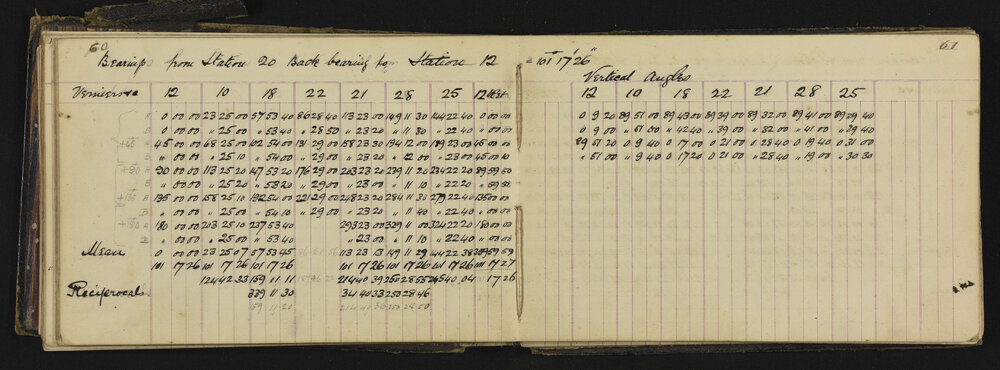 60
Bearings from Station 20 Back bearing from Station 12 = 101° 17' 26"
Verniers 12 10 18 22 21 28 25 12
A 0 00 00 23 25 00 57 53 40 86 28 40 113 23 00 149 11 30 144 22 40 0 00 00
B 0 00 00 " 25 00 " 53 40 " 28 50 " 23 20 " 11 30 " 22 40 " 00 00
+45 A 45 00 00 68 25 00 102 54 00 131 29 00 158 23 30 194 12 00 189 23 00 45 00 00
B " 00 00 " 25 10 " 54 00 " 29 00 " 23 20 " 12 00 " 23 00 45 00 10
+90 A 90 00 00 113 25 20 147 53 20 176 29 00 203 23 20 239 11 20 234 22 20 89 59 50
B " 00 00 " 25 20 " 53 20 " 29 00 " 23 00 " 11 10 " 22 20 " 59 50
+135 A 135 00 00 158 25 10 192 54 00 221 29 00 248 23 20 284 11 30 279 22 40 135 00 00
B " 00 00 " 25 00 " 54 10 " 29 00 " 23 20 " 11 40 " 22 40 " 00 00
+180 A 180 00 00 203 25 10 237 53 40 293 23 00 329 11 00 324 22 20 180 00 00
B " 00 00 " 25 00 " 53 40 " 23 00 " 11 10 " 22 40 " 00 00
Mean 0 00 00 23 25 07 57 53 45 113 23 13 149 11 29 144 22 38 359 59 59
101 17 26 101 17 26 101 17 26 101 17 26 101 17 26 101 17 26 101 17 27
124 42 33 159 11 11 214 40 39 250 28 55 245 40 04 17 26
Reciprocals 339 11 30 34 40 33 250 28 46
159 11 20
61
Vertical Angles
12 10 18 22 21 28 25
0 9 20 89 51 00 89 43 00 89 39 00 89 32 00 89 41 00 89 29 40
0 9 00 " 51 00 " 42 40 " 39 00 " 32 00 " 41 00 " 29 40
89 51 20 0 9 40 0 17 00 0 21 00 0 28 40 0 19 40 0 31 00
" 51 00 " 9 40 0 17 20 0 21 00 " 28 40 " 19 00 " 30 30